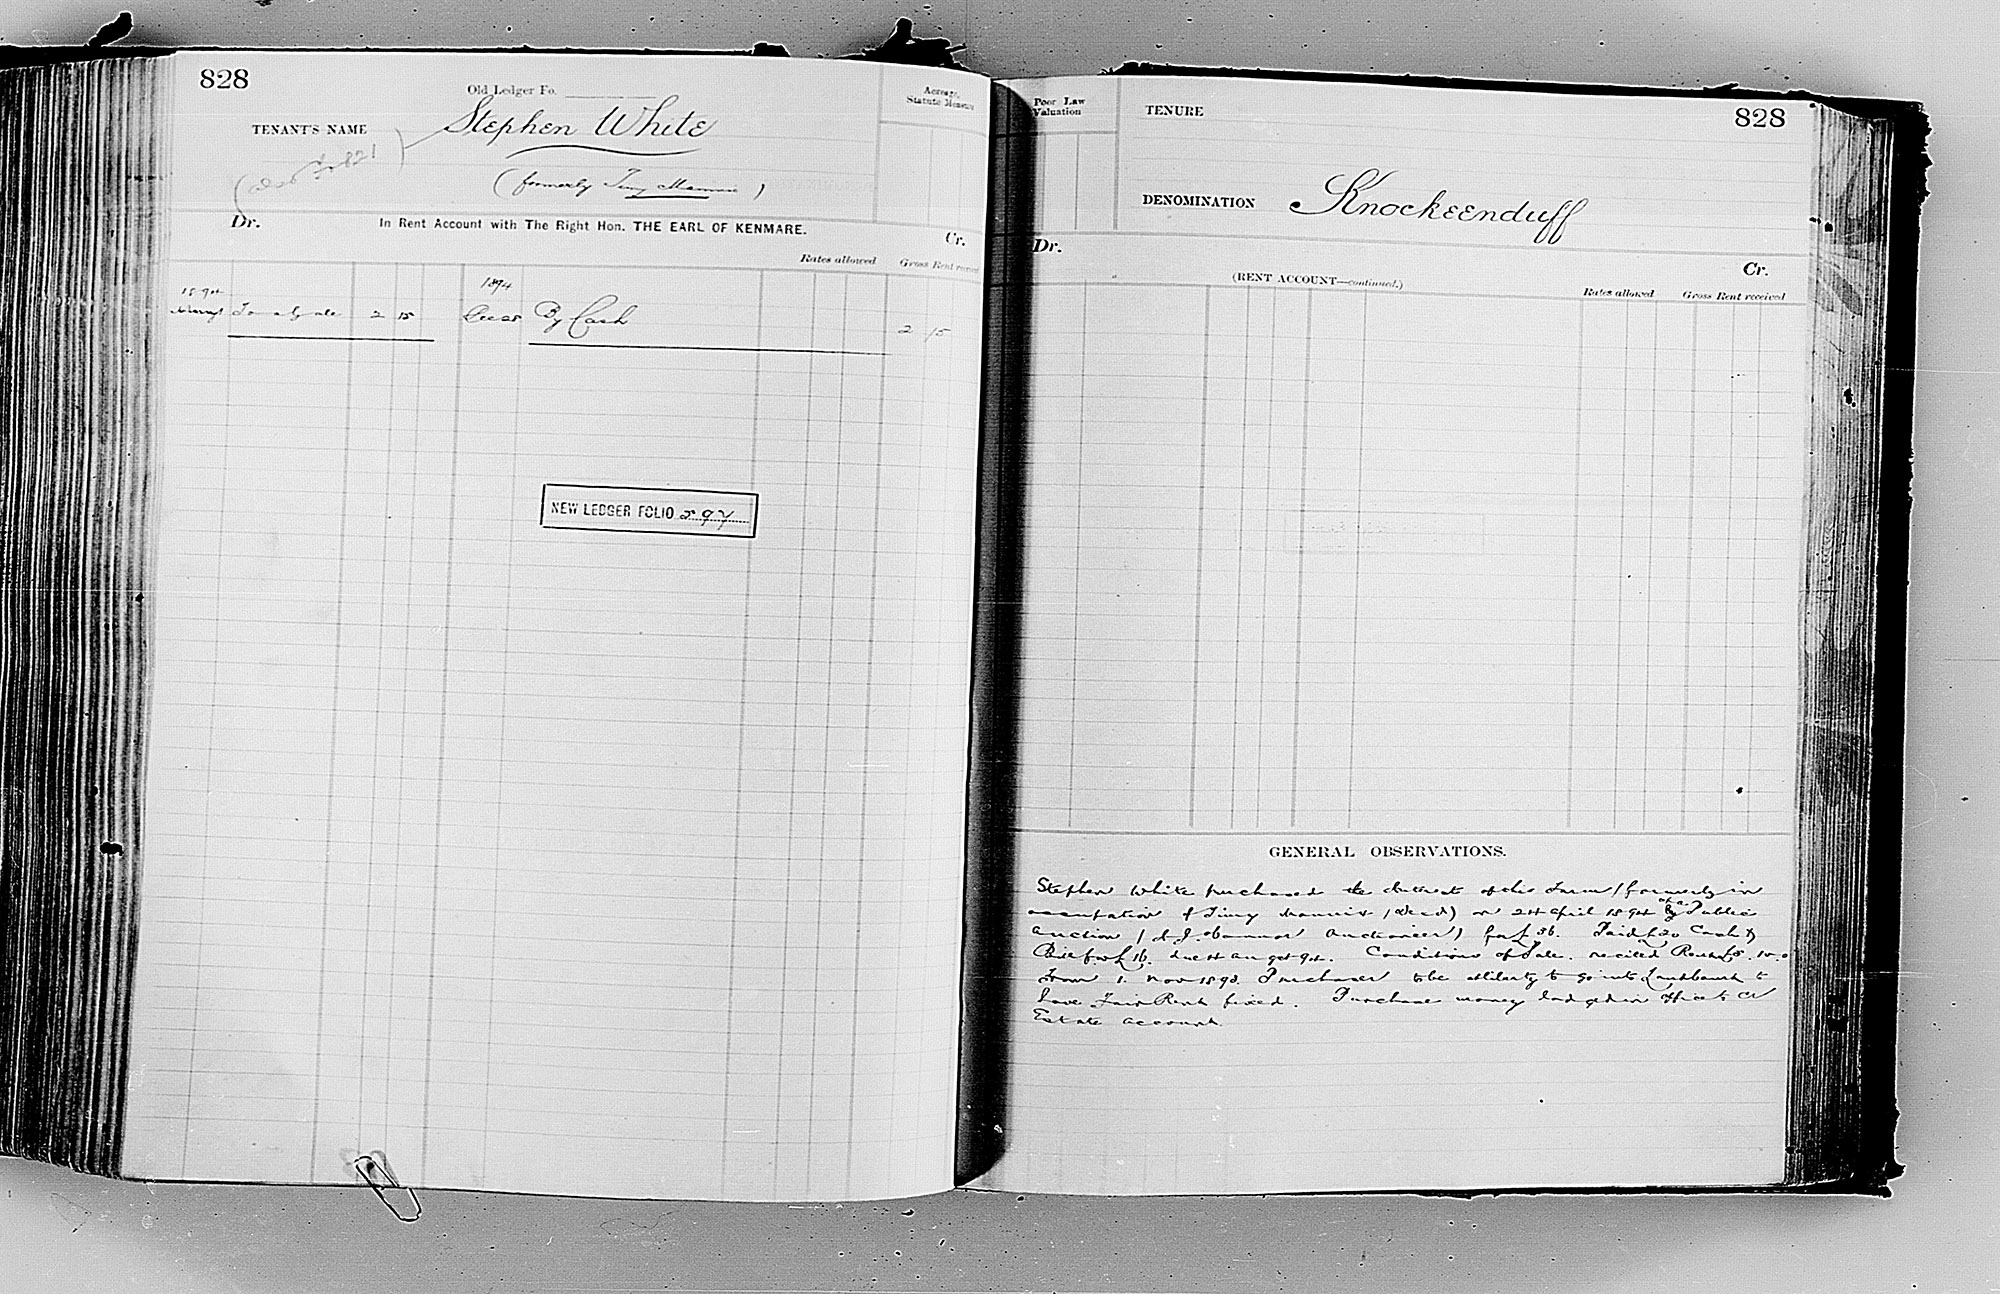 828
Old Ledger Fo.
TENANT'S NAME
Stephen White
(formerly Timy
Acreage,
Statute Measure
Dr.
In Rent Account with The Right Hon. THE EARL OF KENMARE.
Cr.
Rates allowed Gross Rent received
1894 To ½ gale 2 15
1894
Dec 28 By Cash 2 15
NEW LEDGER FOLIO 297
Poor Law
Valuation
TENURE
828
DENOMINATION Knockeenduff
Dr.
(RENT ACCOUNT—continued.)
Cr.
Rates allowed Gross Rent received
GENERAL OBSERVATIONS.
Stephen White purchased the Interest of this Farm (formerly in
occupation of Timy (decd) on 24 April 1894 by Public
Auction ( Auctioneer) for £36. Paid £20 Cash &
Bill for £16. due Conditions of Sale. recited Rent
from 1. Nov 1893. Purchaser to be at liberty to go into Landcourt to
have Fair Rent fixed. Purchase money lodged in office to Cr
Estate account.